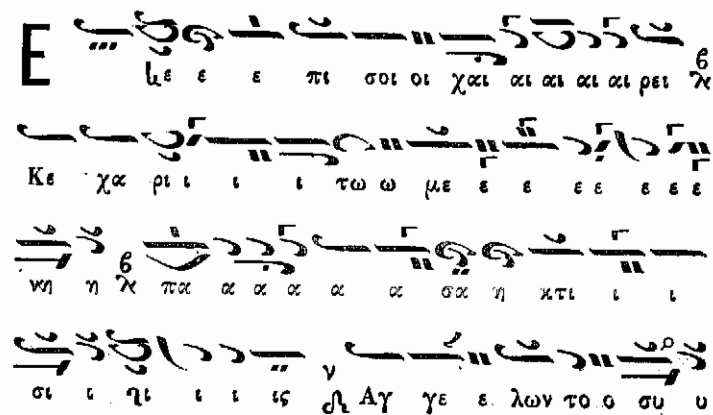 Ε με ε ε πι σοι οι χαι αι αι αι αι ρει β
Κε χα ρι ι ι ι τω ω με ε ε ε ε ε ε ε
νη η β πα α α α α α σα η κτι ι ι
σι ι ηι ι ι ις ν Αγ γε ε λων το ο συ υ